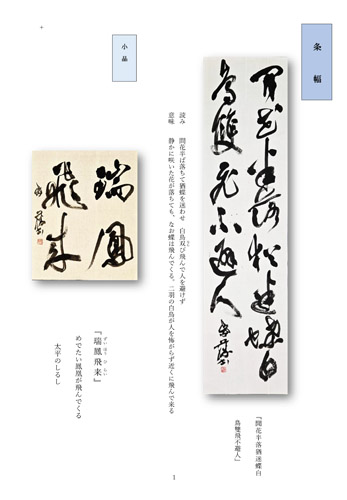 条幅
閒花半落猶迷蝶白
鳥雙飛不避人
『閒花半落猶迷蝶白
鳥雙飛不避人』
読み　閒花半ば落ちて猶蝶を迷わせ　白鳥双び飛んで人を避けず
意味　静かに咲いた花が落ちても、なお蝶は飛んでくる。二羽の白鳥が人を怖がらず近くに飛んで来る
小品
瑞鳳
飛来
『瑞鳳飛来』
ずいほうひらい
めでたい鳳凰が飛んでくる
太平のしるし
1